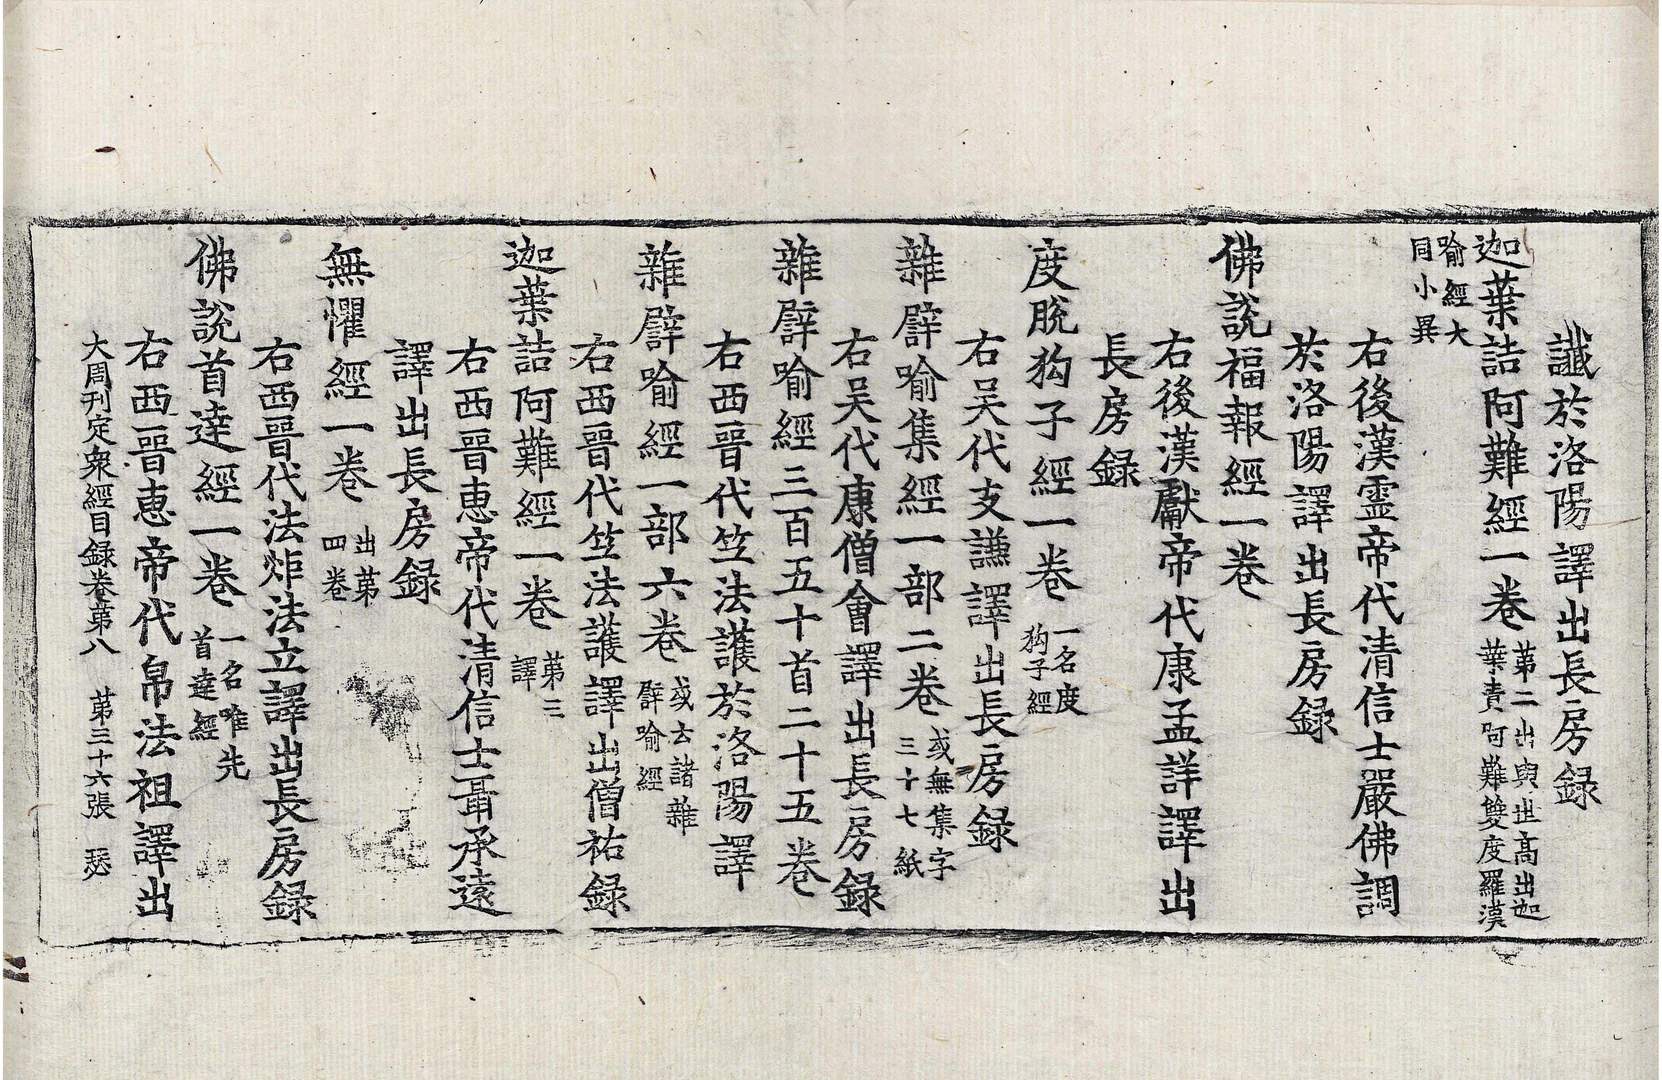 讖於洛陽譯出長房録
迦葉詰阿難經一卷第二出與世髙出迦
葉責阿難雙度羅漢
喻經大
同小異
右後漢靈帝代清信士嚴佛調
於洛陽譯出長房録
佛說福報經一卷
右後漢獻帝代康孟詳譯出
長房録
度脫狗子經一卷一名度
狗子經
右吴代支謙譯出長房録
雜譬喻集經一部二卷或無集字
三十七紙
右吴代康僧會譯出長房録
雜譬喻經三百五十首二十五卷
右西晉代竺法護於洛陽譯
雜譬喻經一部六卷或云諸雜
譬喻經
右西晉代竺法護譯出僧祐録
迦葉詰阿難經一卷第三
譯
右西晉惠帝代清信士聶承遠
譯出長房録
無懼經一卷出第
四卷
右西晉代法炬法立譯出長房録
佛說首達經一卷一名唯先
首達經
右西晉惠帝代帛法祖譯出
大周刊定衆經目録卷第八 第三十六張 瑟